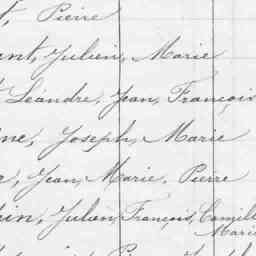 Pierre
Julien, Marie
Léandre, Jean, François
Joseph, Marie
Jean, Marie, Pierre
Julien, François, Camille
Marie